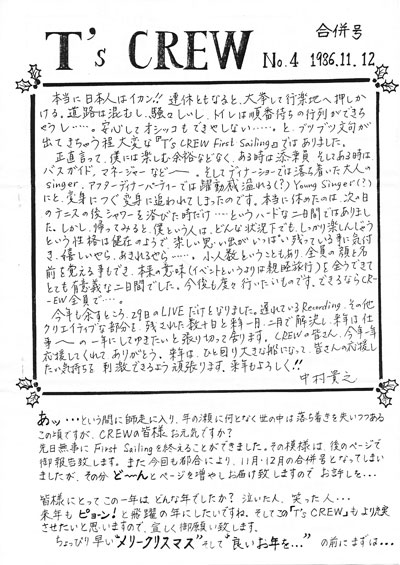 T's CREW
合併号
No.4 1986.11.12
本当に日本人はイカン!! 連休ともなると、大挙して行楽地へ押しか
ける。道路は混むし、騒々しいし、トイレは順番待ちの行列ができち
ゃうし‥‥。安心してオシッコもできやしない‥‥。と、ブツブツ文句が
出てきちゃう程大変な『T's CREW First Sailing』ではありました。
正直言って、僕には楽しむ余裕などなく、ある時は添乗員、そしてある時は
バスガイド、マネージャーなど〜。そしてディナーショーでは落ち着いた大人の
singer。アフターディナーパーティーでは躍動感溢れる(?)Young Singer(?)
にと、変身につぐ変身に追われてしまったのです。本当に休めたのは、次の日
のテニスの後シャワーを浴びた時だけ‥‥というハードな二日間ではありまし
た。しかし、帰ってみると、僕という人は、どんな状況下でも、しっかり楽しんじゃう
という性格は健在のようで、楽しい思い出がいっぱい残っている事に気付
き、嬉しいやら、あきれるやら‥‥‥。小人数ということもあり、全員の顔と名
前を覚える事もでき、本来の意味(イベントというよりは親睦旅行)を全うできて
とても有意義な二日間でした。今後も度々行いたいものです。できるならCR-
-EW全員で‥‥。
今年も余すところ、29日のLIVEだけとなりました。遅れているRecording、その他
クリエイティブな部分を、残された数十日と来年一月、二月で解決し、来年は仕
事〜の一年にしてゆきたいと張り切って居ります。CREWの皆さん、今年一年
応援してくれてありがとう。来年は、ひと回り大きな船になって、皆さんの応援し
たい気持ちを刺激できるよう頑張ります。来年もよろしく!!
中村貴之
あッ‥‥という間に師走に入り、年の瀬に何となく世の中は落ち着きを失いつつある
この頃ですが、CREWの皆様、お元気ですか?
先日無事に First Sailingを終えることができました。その模様は、後のページで
御報告致します。また今回も都合により、11月・12月の合併号となってしまい
ましたが、その分ど〜んとページを増やしお届け致しますのでお許しを‥‥
皆様にとってこの一年はどんな年でしたか? 泣いた人、笑った人‥‥
来年もピョーン!と飛躍の年にしたいですね。そしてこの『T's CREW』もより充実
させたいと思いますので、宜しく御願い致します。
ちょっぴり早い"メリークリスマス"そして"良いお年を‥‥"の前にまずは‥‥